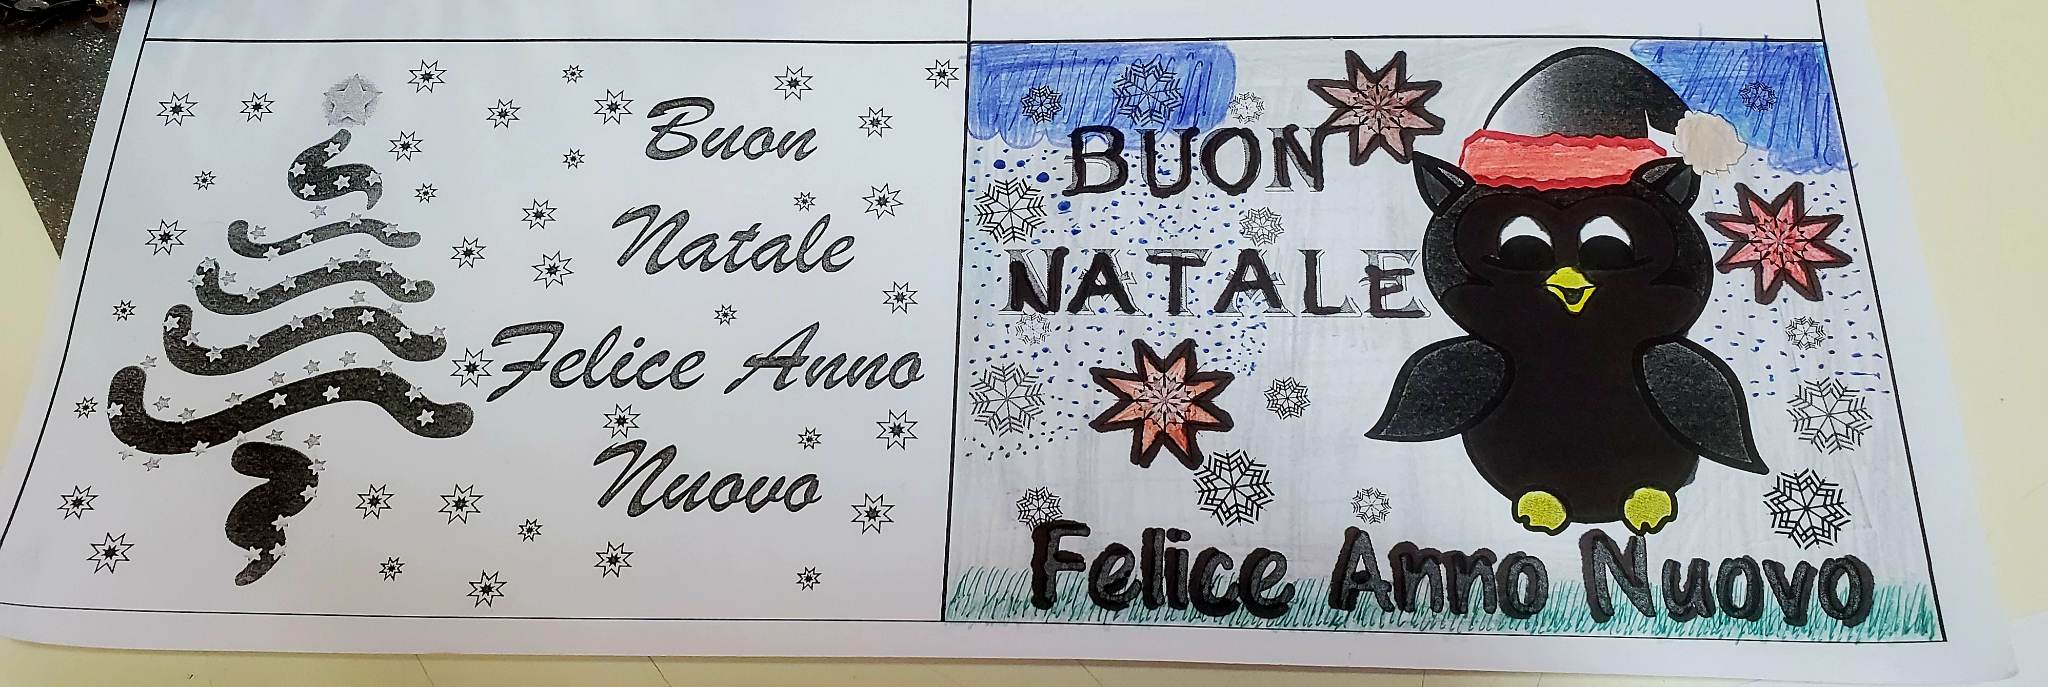 Buon
Natale
Felice Anno
Nuovo
BUON
NATALE
Felice Anno Nuovo